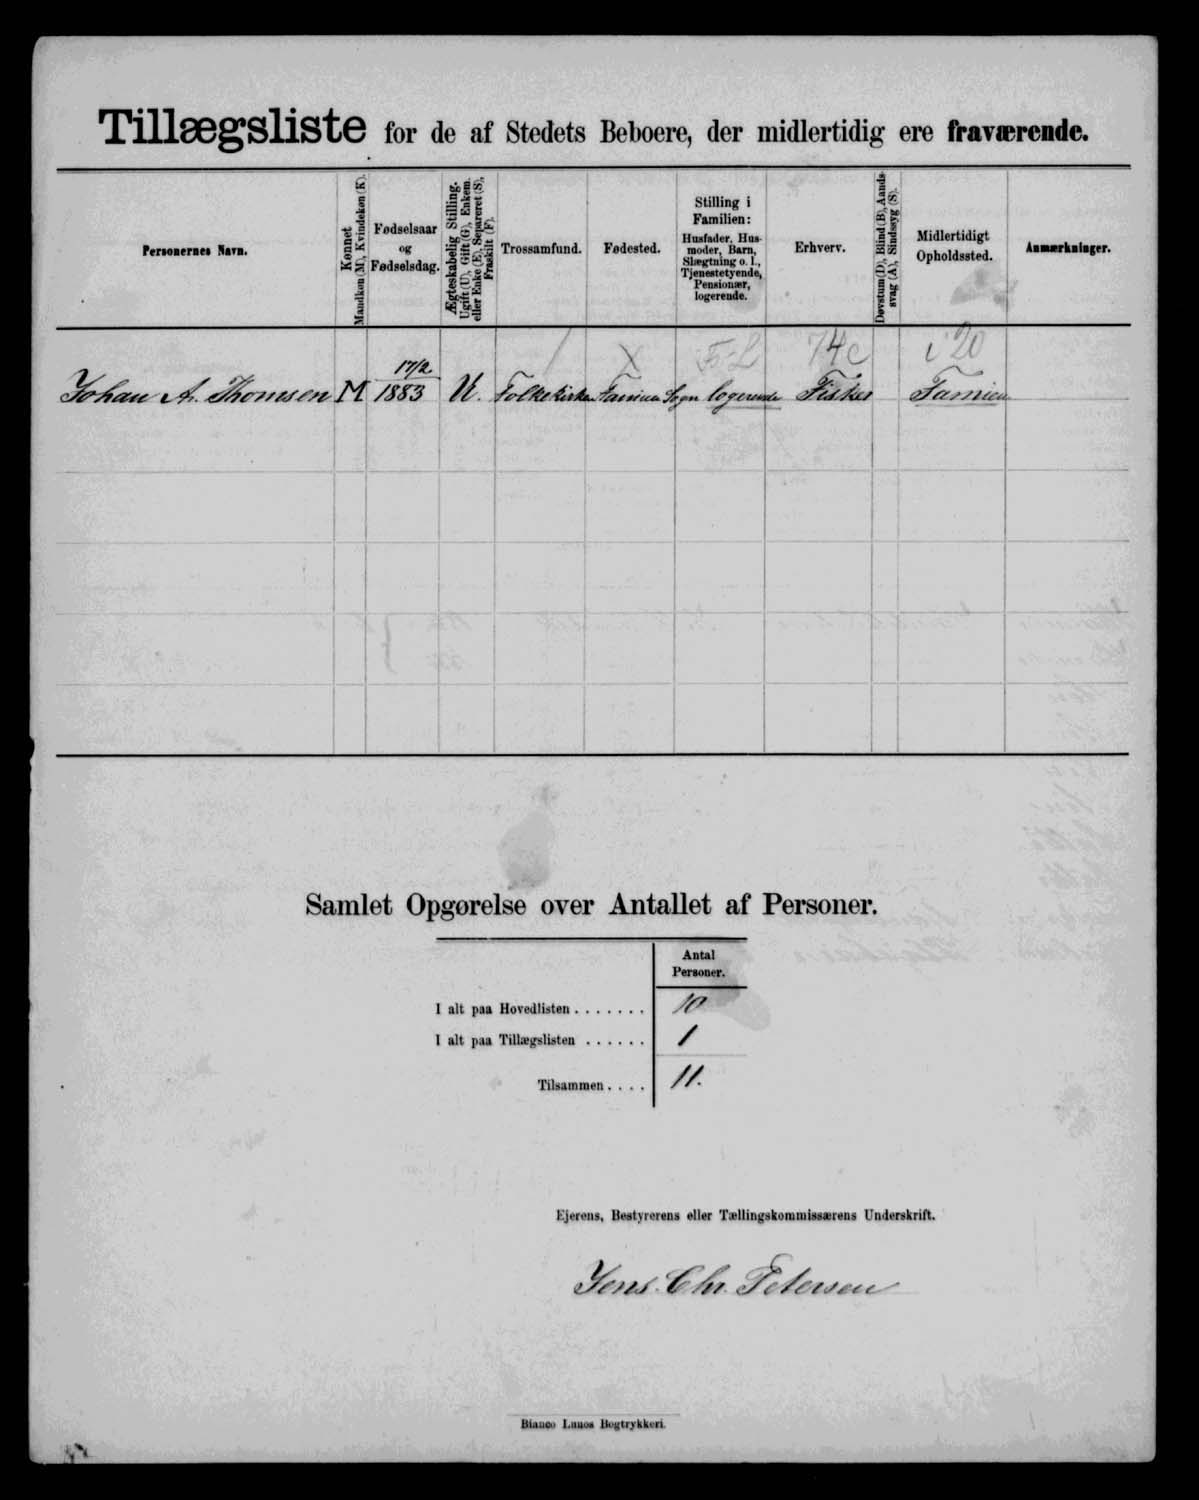 Tillægsliste for de af Stedets Beboere, der midlertidig ere fraværende.
Personernes Navn.
Kønnet
Mandkøn (M), Kvindekøn (K).
Fødselsaar
og
Fødselsdag.
Ægteskabelig Stilling.
Ugift (U), Gift (G), Enkem.
eller Enke (E), Separeret (S),
Fraskilt (F).
Trossamfund.
Fødested.
Stilling i
Familien:
Husfader, Hus-
moder, Barn,
Slægtning o. l.,
Tjenestetyende,
Pensionær,
logerende.
Erhverv.
Døvstum (D), Blind (B), Aands-
svag (A), Sindssyg (S).
Midlertidigt
Opholdssted.
Anmærkninger.
74c
i 20
17/2
Johan A. Thomsen M 1883 U. Folkekirken Sogn logerende Fisker
Samlet Opgørelse over Antallet af Personer.
Antal
Personer.
I alt paa Hovedlisten . . . . . . . 10
I alt paa Tillægslisten . . . . . . 1
Tilsammen . . . . 11.
Ejerens, Bestyrerens eller Tællingskommissærens Underskrift.
Jens. Chr. Petersen
Bianco Lunos Bogtrykkeri.